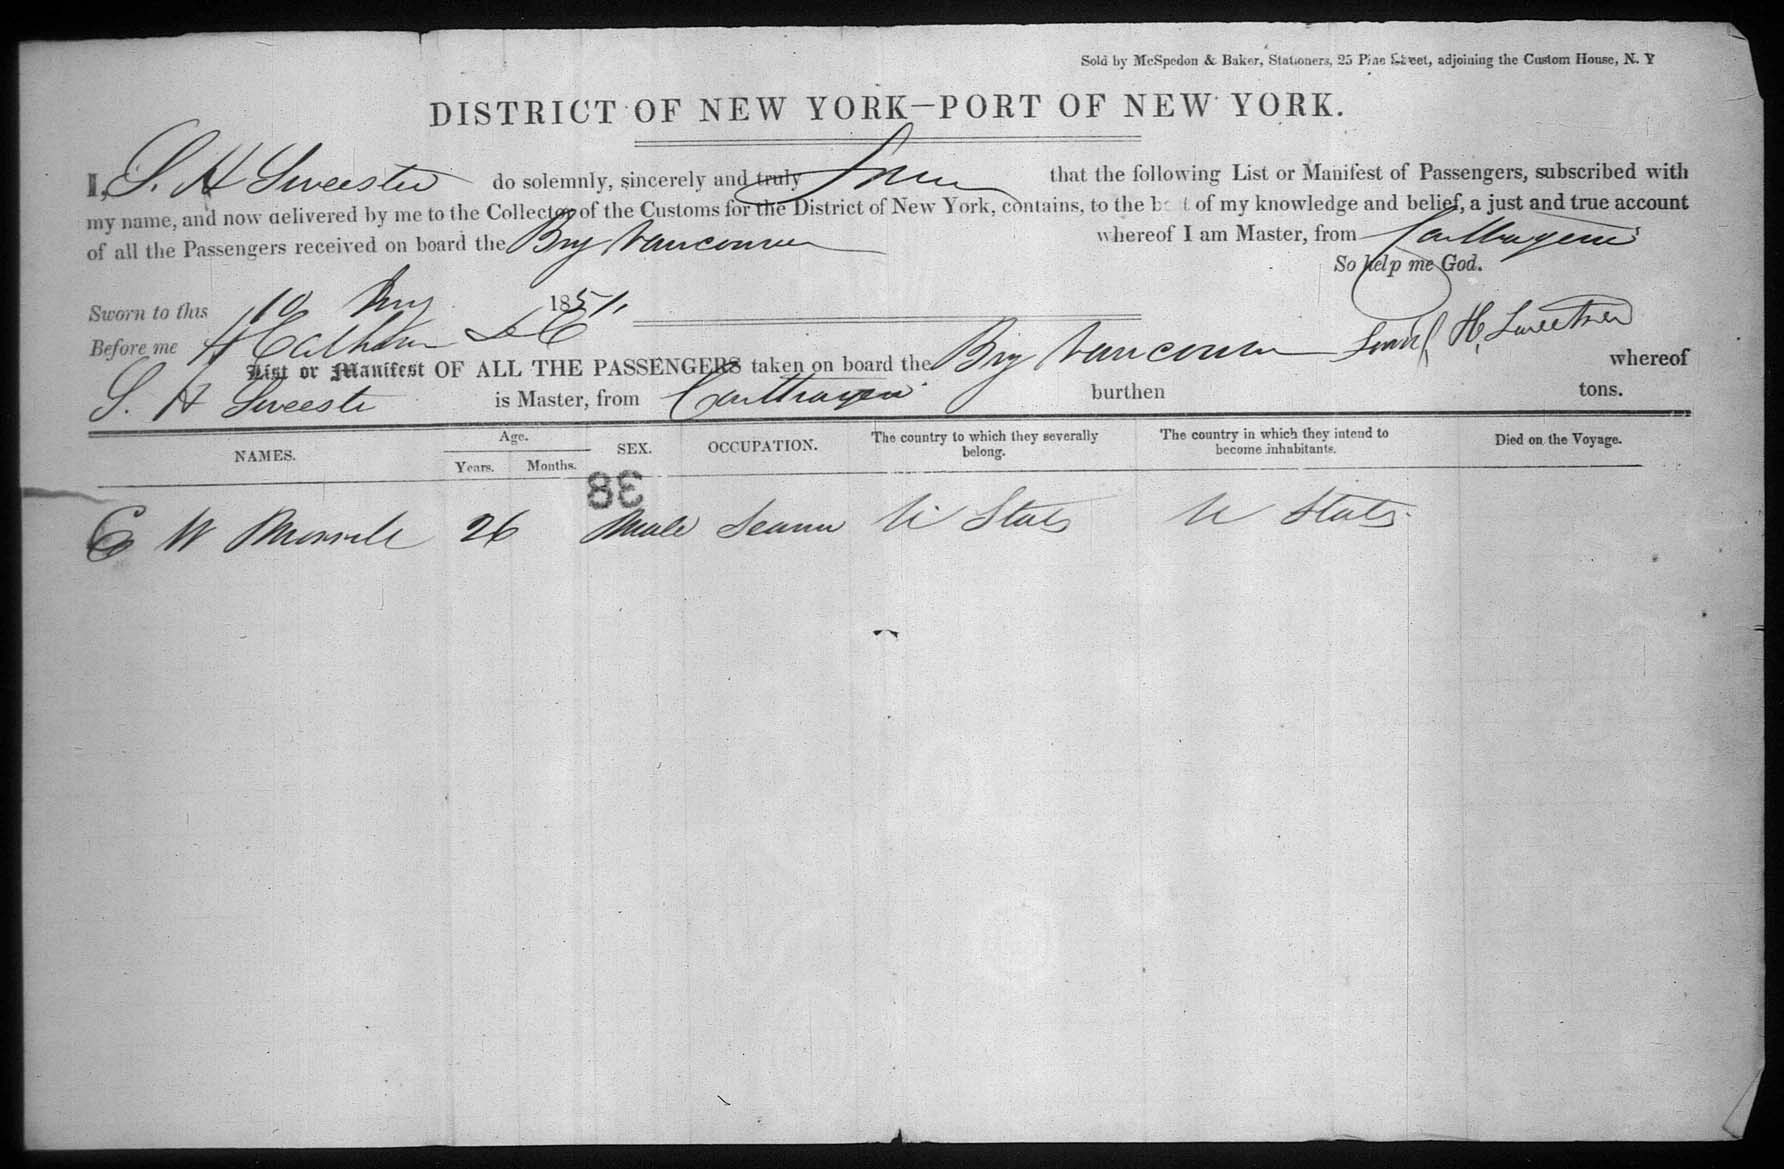 Sold by McSpedon & Baker, Stationers, 25 Pine Street, adjoining the Custom House, N. Y
DISTRICT OF NEW YORK—PORT OF NEW YORK.
I, S. H Sweetser do solemnly, sincerely and truly Swear that the following List or Manifest of Passengers, subscribed with
my name, and now delivered by me to the Collector of the Customs for the District of New York, contains, to the best of my knowledge and belief, a just and true account
of all the Passengers received on board the Brig Vancouver whereof I am Master, from Carthagena
So help me God.
Sworn to this 10 1851,
Before me H Calhoun D C Saml H, Sweetser
List or Manifest OF ALL THE PASSENGERS taken on board the Brig Vancouver whereof
S. H Sweetser is Master, from Carthagena burthen tons.
NAMES. Age. Years. Months. SEX. OCCUPATION. The country to which they severally belong. The country in which they intend to become inhabitants. Died on the Voyage.
38
E W 26 Male Seaman U States U States.